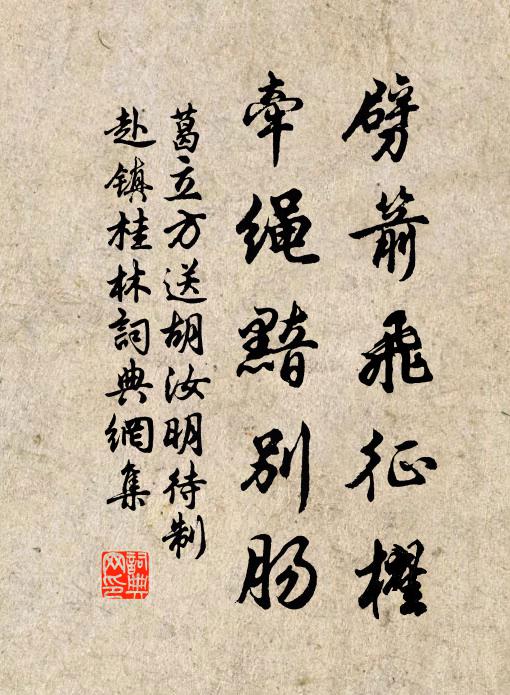 劈箭飛征櫂
牽绳黯别肠
葛立方送胡汝明待制
赴镇桂林詞典網集
詞典网印